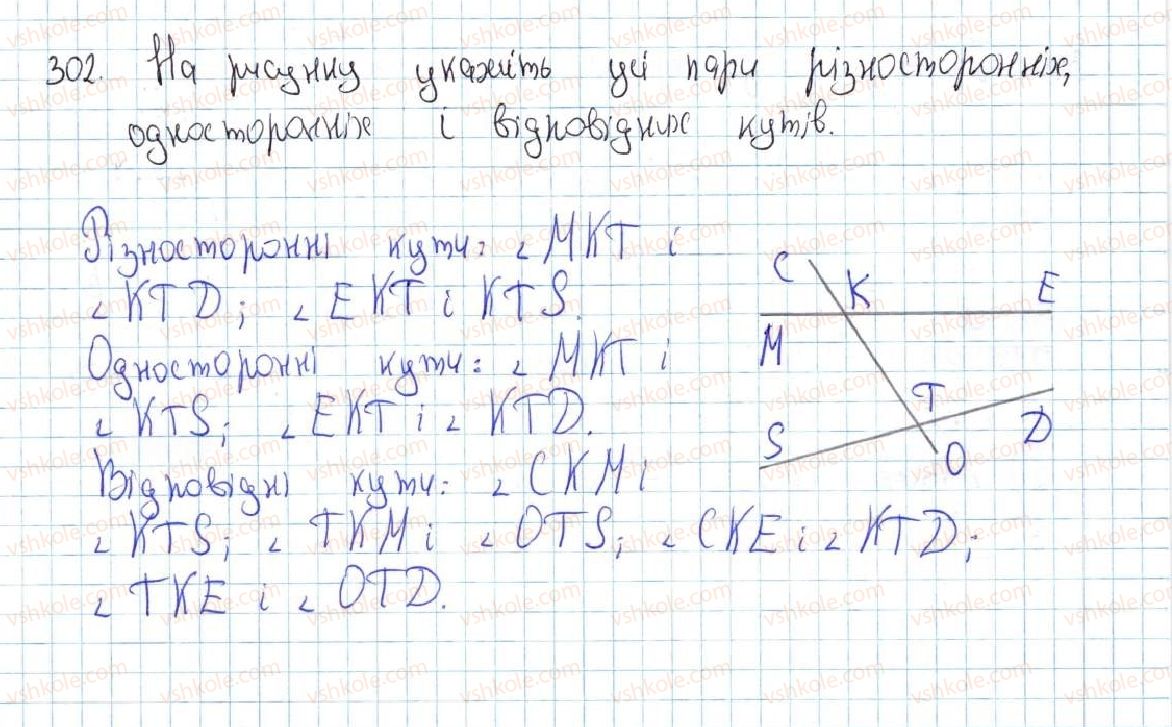 302. На рисунку укажіть усі пари різносторонніх,
односторонніх і відповідних кутів.
Різносторонні кути: ∠MKT і
∠KTD; ∠EKT і KTS.
Односторонні кути: ∠MKT і
∠KTS; ∠EKT і ∠KTD.
Відповідні кути: ∠CKM і
∠KTS; ∠TKM і ∠OTS; ∠CKE і ∠KTD;
∠TKE і ∠OTD.
C
K
E
M
T
S
D
O
vshkole.com